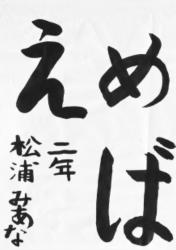 めば
え
二年
松浦みあな